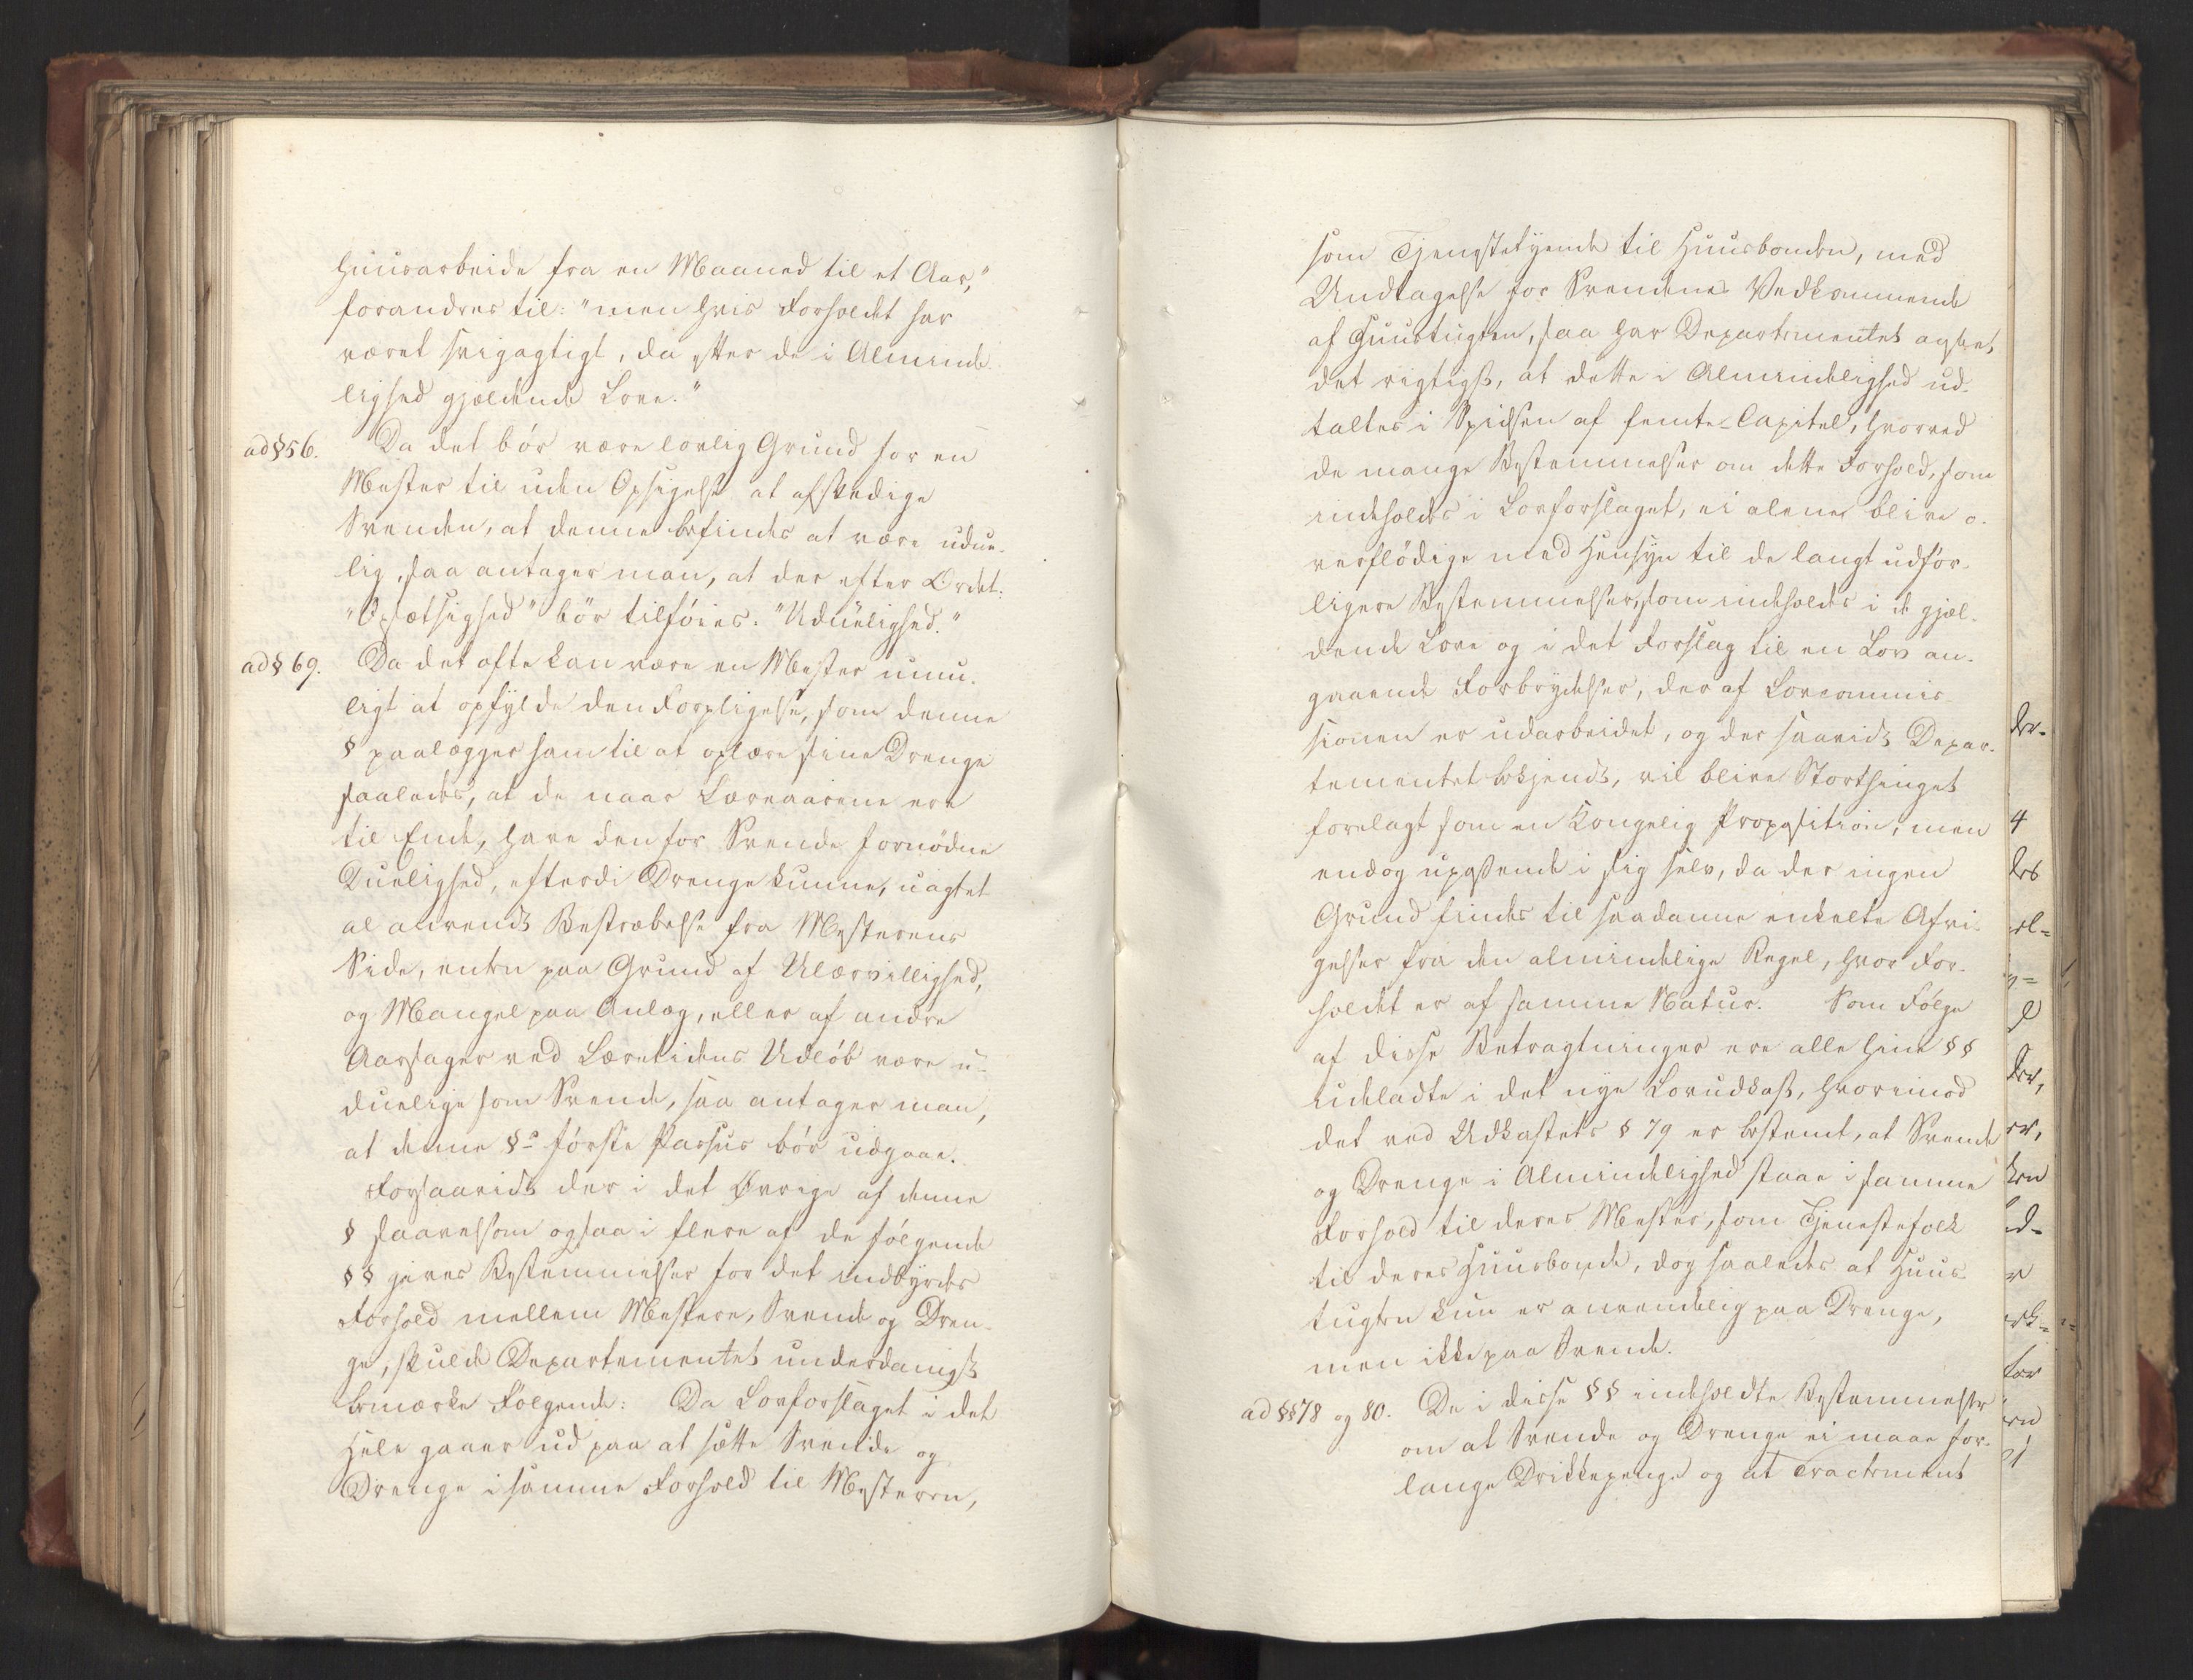 Huusarbeide fra en Maaned til et Aar,"
forandres til: "men hvis Forholdet har
været svigagtigt, da efter de i Alminde-
lighed gjældende Love."
ad § 56. Da det bör være lovlig Grund for en
Mester til uden Opsigelse at afskedige
Svenden, at denne befindes at være udue-
lig, saa antager man, at der efter Ordet:
"Opsætsighed" bör tilföies: "Uduelighed."
ad § 69. Da det ofte kan være en Mester umu-
ligt at opfylde den Forpligtelse, som denne
§ paalægger ham til at oplære sine Drenge
saaledes, at de naar Læreaarene ere
til Ende, have den for Svende fornödne
Duelighed, efterdi Drenge kunne, uagtet
al anvendt Bestræbelse fra Mesterens
Side, enten paa Grund af Ulærvillighed,
og Mangel paa Anlæg, eller af andre
Aarsager ved Læretidens Udlöb være u-
duelige som Svende, saa antager man,
at denne §s förste Passus bör udgaae.
Forsaavidt der i det Övrige af denne
§ saavelsom ogsaa i flere af de fölgende
§§ gives Bestemmelser for det indbyrdes
Forhold mellem Mestere, Svende og Dren-
ge, skulde Departementet underdanigst
bemærke Fölgende: Da Lovforslaget i det
Hele gaaer ud paa at sætte Svende og
Drenge i samme Forhold til Mesteren,
som Tjenestetyende til Huusbonden, med
Undtagelse for Svendenes Vedkommende
af Huustugten, saa har Departementet agtet
det rigtigst, at dette i Almindelighed ud-
taltes i Spidsen af femte Capitel, hvorved
de mange Bestemmelser om dette Forhold, som
indeholdes i Lovforslaget, ei alene blive o-
verflödige med Hensyn til de langt udför-
ligere Bestemmelser, som indeholdes i de gjæl-
dende Love og i det Forslag til en Lov an-
gaaende Forbrydelser, der af Lovcommis-
sionen er udarbeidet, og der saavidt Depar-
tementet bekjendt, vil blive Storthinget
forelagt som en Kongelig Proposition, men
endog upassende i sig selv, da der ingen
Grund findes til saadanne enkelte Afvi-
gelser fra den almindelige Regel, hvor For-
holdet er af samme Natur. Som Fölge
af disse Betragtninger ere alle hine §§
udeladte i det nye Lovudkast, hvorimod
det ved Udkastets § 79 er bestemt, at Svende
og Drenge i Almindelighed staae i samme
Forhold til deres Mester, som Tjenestefolk
til deres Huusbonde, dog saaledes at Huus-
tugten kun er anvendelig paa Drenge,
men ikke paa Svende.
ad §§ 78 og 80. De i disse §§ indeholdte Bestemmelser
om at Svende og Drenge ei maae for-
lange Drikkepenge og at Tractement